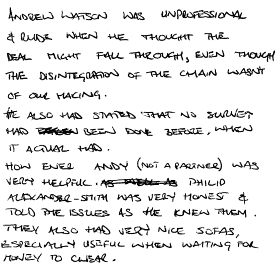 ANDREW WATSON WAS UNPROFESSIONAL
& RUDE WHEN HE THOUGHT THE
DEAL MIGHT FALL THROUGH, EVEN THOUGH
THE DISINTEGRATION OF THE CHAIN WASNT
OF OUR MAKING.
HE ALSO HAD STATED THAT NO SURVEY
HAD BEEN DONE BEFORE, WHEN
IT ACTUAL HAD.
HOW EVER ANDY (NOT A PARTNER) WAS
VERY HELPFUL. PHILIP
ALEXANDER-SMITH WAS VERY HONEST &
TOLD THE ISSUES AS HE KNEW THEM.
THEY ALSO HAD VERY NICE SOFAS,
ESPECIALLY USEFUL WHEN WAITING FOR
MONEY TO CLEAR.